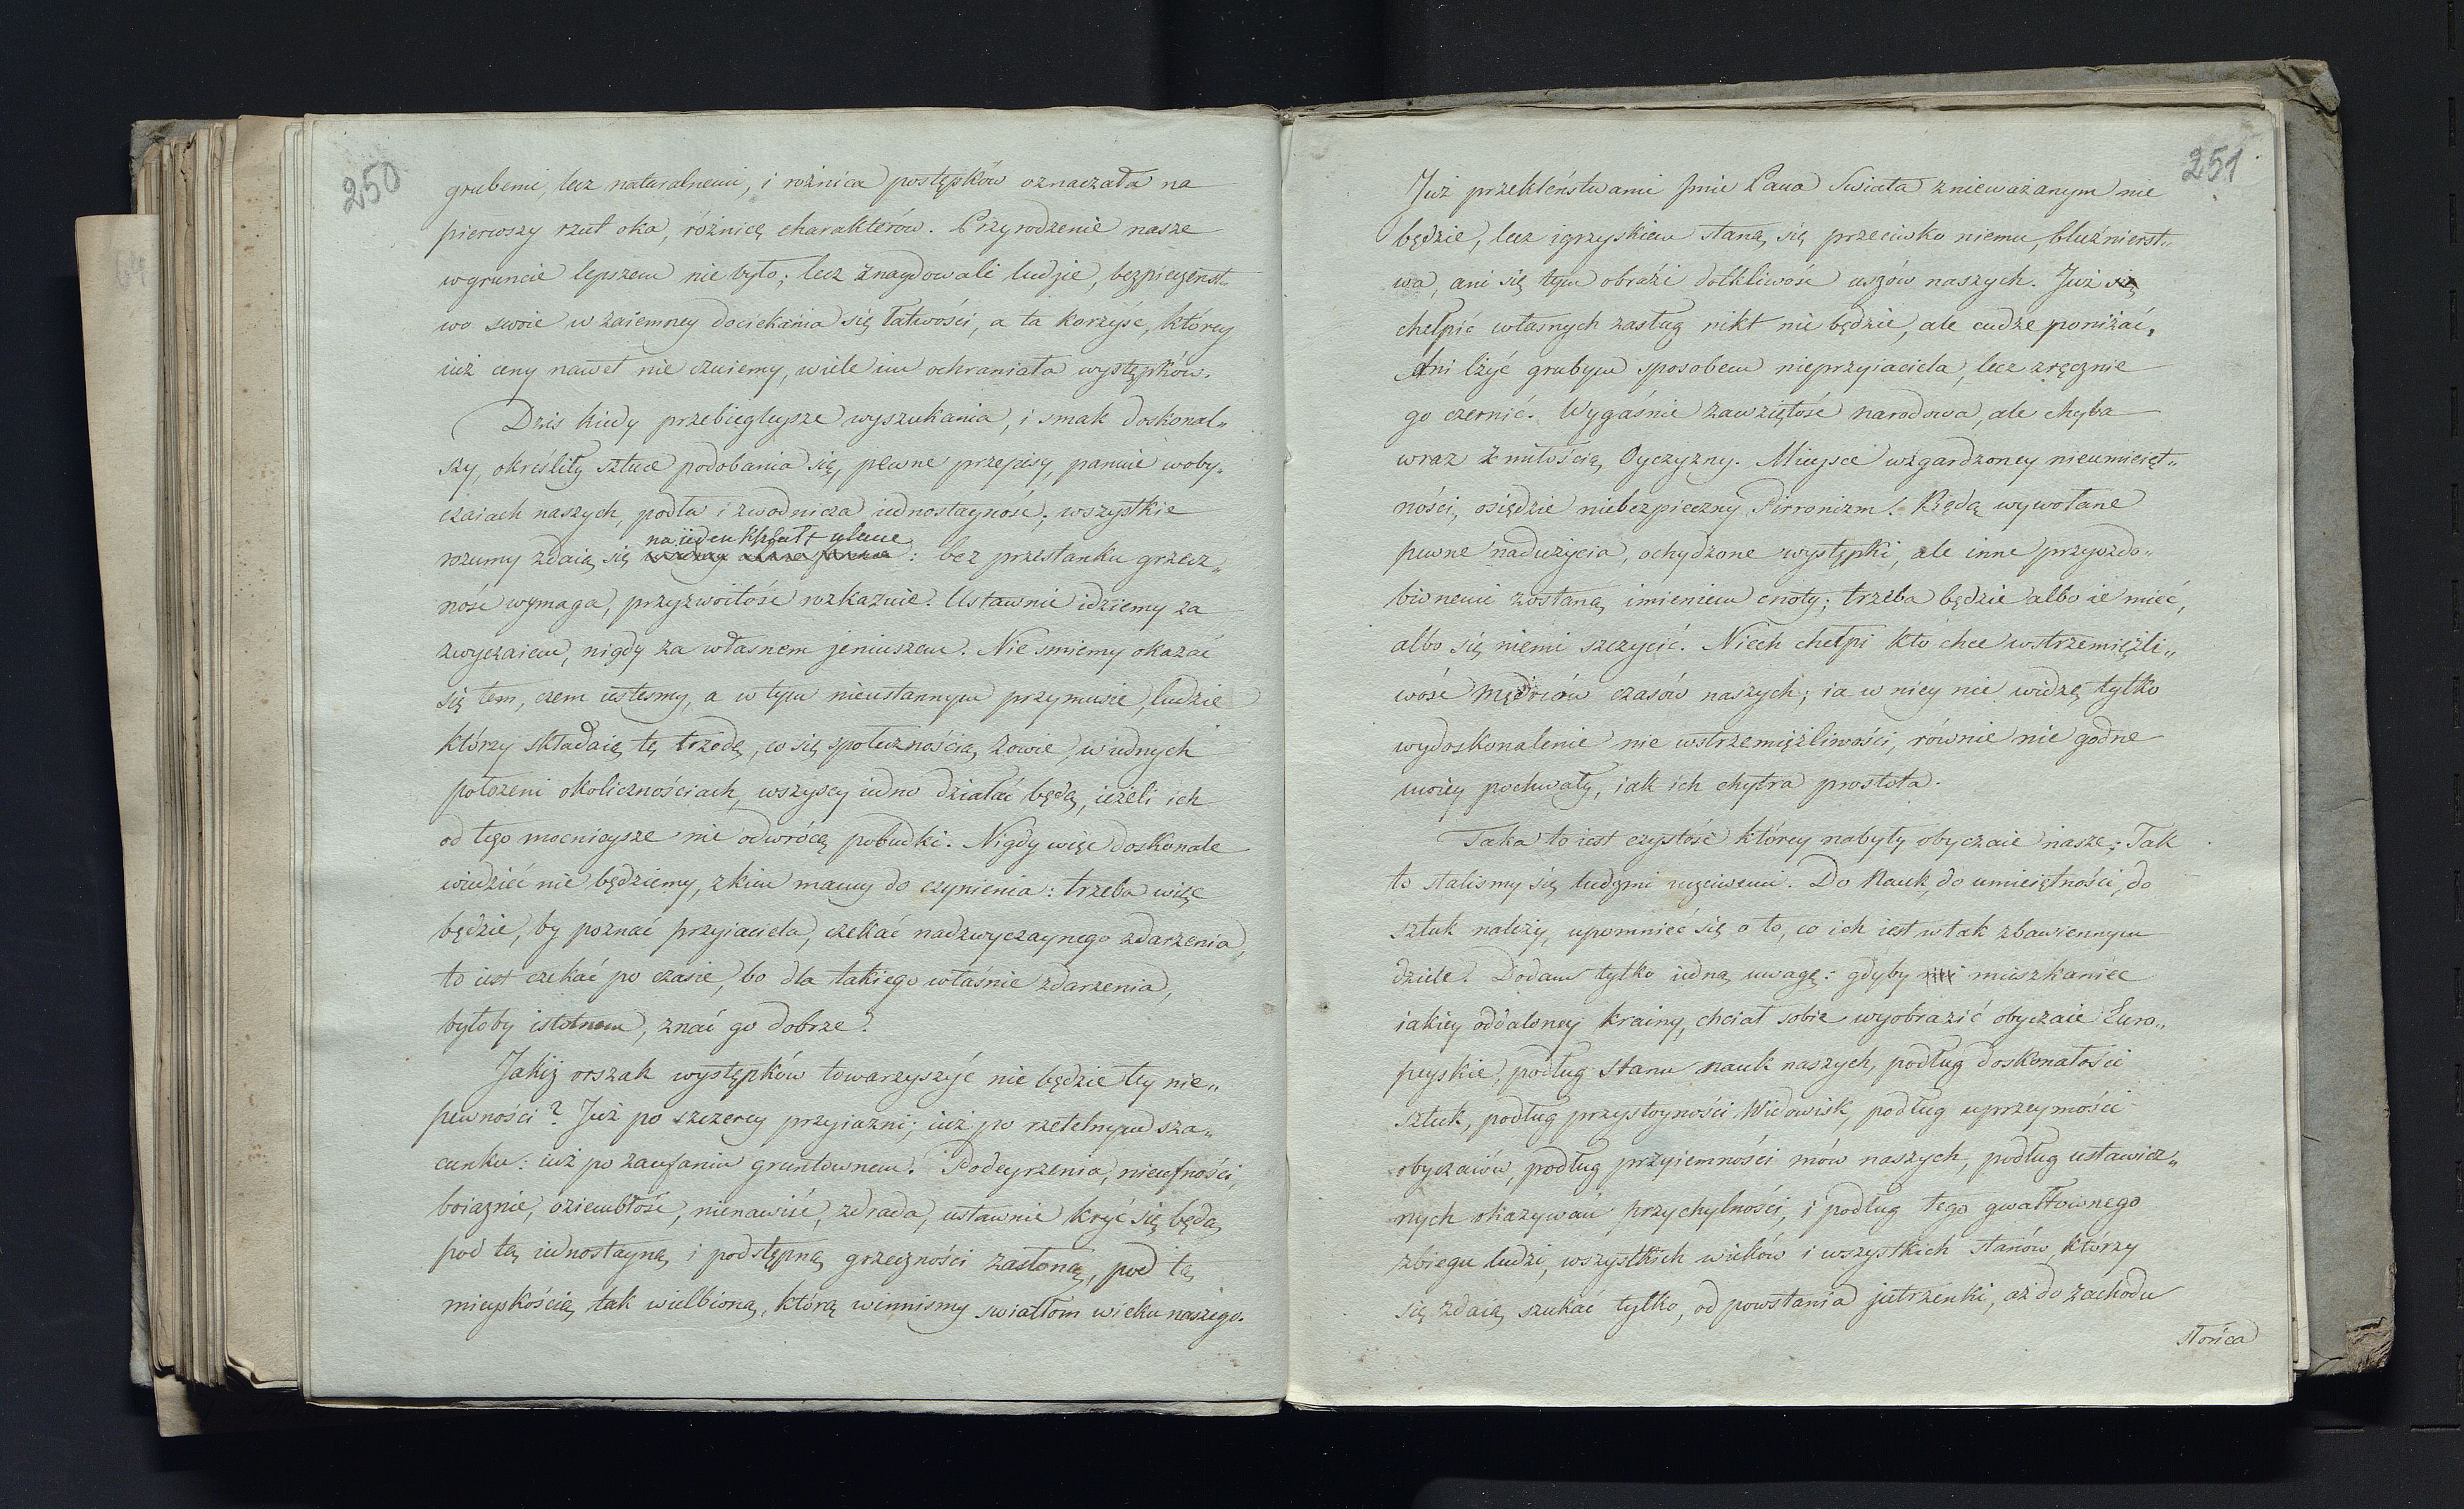 250
grubemi, lecz naturalnemi, i rożnica postępków oznaczała na
pierwszy rzut oka, różnicę charakterów. Przyrodzenie nasze
wgruncie lepszem nie było; lecz znaydowali ludzie, bezpieczenst„
wo swoie w zaiemney dociekania się łatwości, a ta korzyść, którey
iuż ceny nawet nie czuiemy, wiele im ochraniała występków.
Dziś kiedy przebiegleysze wyszukania, i smak doskonal„
szy, określiły sztuce podobania się, pewne przepisy, panuie woby„
czaiach naszych, podła i zwodnicza iednostayność; wszystkie
na ieden kształt ulane
rozumy zdaią się : bez przestanku grzecz„
ność wymaga, przyzwoitość rozkazuie. Ustawnie idziemy za
zwyczaiem, nigdy za własnem jeniuszem. Nie smiemy okazać
się tem, czem iestesmy, a w tym nieustannym przymusie, ludzie
którzy składaią tę trzodę, co się społecznością zowie, w iednych
położeni okolicznościach, wszyscy iedno działać będą, ieżeli ich
od tego mocnieysze nie odwrócą pobudki. Nigdy więc doskonale
wiedzieć nie będziemy, z kim mamy do czynienia: trzeba więc
będzie, by poznać przyiaciela, czekać nadzwyczaynego zdarzenia,
to iest czekać po czasie, bo dla takiego właśnie zdarzenia,
byłoby istotnem, znać go dobrze.
Jakiż orszak występków towarzyszyć nie będzie tey nie„
pewności? Już po szczerey przyiazni; iuż po rzetelnym sza„
cunku: iuż po zaufaniu gruntownem. Podeyrzenia, nieufności,
boiaznie, oziembłość, nienawiść, zdrada, ustawnie kryć się będą
pod tą iednostayną i podstępną grzeczności zasłoną, pod tą
mieyskością tak wielbioną, którą winnismy swiatłom wieku naszego.
251
Już przekleństwami Jmie Pana Swiata znieważanym nie
będzie, lecz igrzyskiem staną się przeciwko niemu, bluźnierst„
wa, ani się tym obrazi dotkliwość uszów naszych. Już się
chełpić własnych zasług nikt nie będzie, ale cudze poniżać,
Ani lżyć grubym sposobem nieprzyiaciela, lecz zręcznie
go czernić. Wygaśnie zawziętość narodowa, ale chyba
wraz z miłością Oyczyzny. Mieysce wzgardzoney nieumieięt„
ności, osiędzie niebezpieczny Pirronizm. Będą wywołane
pewne nadużycia, ochydzone występki, ale inne przyozdo„
bionemi zostaną imieniem cnoty; trzeba będzie albo ie mieć,
albo się niemi szczycić. Niech chełpi kto chce wstrzemięźli„
wość mędrców czasów naszych; ia w niey nie widzę tylko
wydoskonalenie nie wstrzemięźliwości, równie nie godne
moiey pochwały, iak ich chytra prostota.
Taka to iest czystość którey nabyły obyczaie nasze; Tak
to stalismy się ludzmi uczciwemi. Do Nauk, do umieiętności, do
sztuk należy, upomnieć się o to, co ich iest w tak zbawiennym
dziele. Dodam tylko iedną uwagę: gdyby mieszkaniec
iakiey oddaloney krainy, chciał sobie wyobrazić obyczaie Euro„
peyskie, podług stanu nauk naszych, podług doskonałości
sztuk, podług przystoyności Widowisk, podług uprzeymości
obyczaiów, podług przyiemności mów naszych, podług ustawicz„
nych okazywań przychylności, i podług tego gwałtownego
zbiegu ludzi, wszystkich wieków i wszystkich stanów, którzy
się zdaią szukać tylko, od powstania jutrzenki, aż do zachodu
słońca